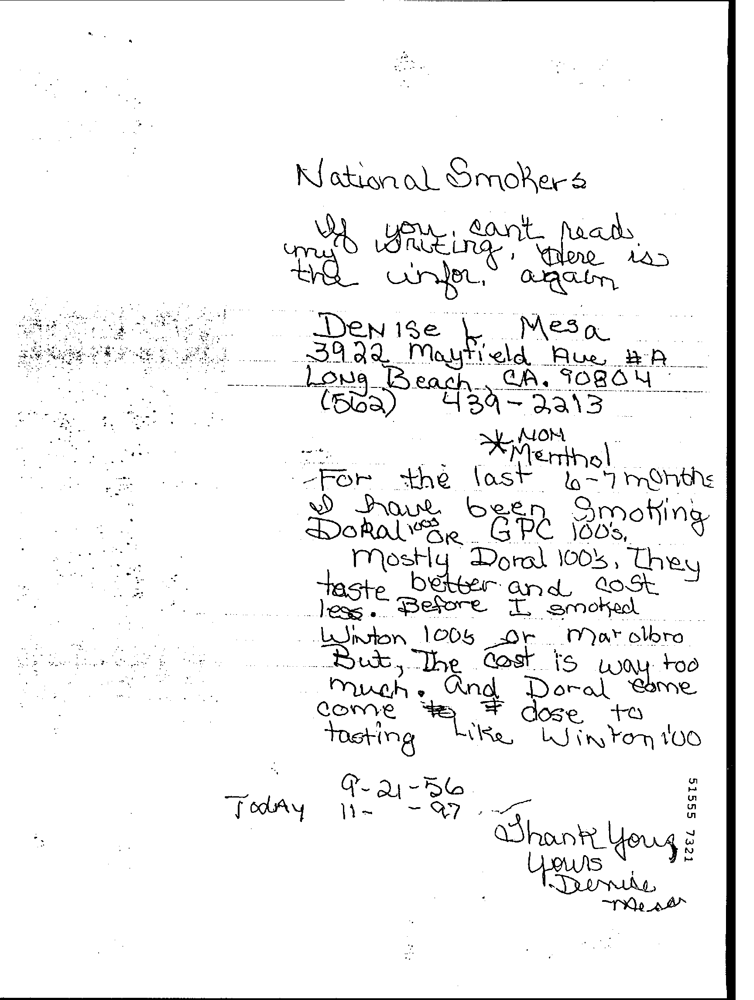 National Smokers
If you can't read
my writing, Here is
the infor, again
Denise L Mesa
3922 Mayfield Ave #A
Long Beach, CA. 90804
(562) 439-2213
* NON
Menthol
For the last 6-7 months
I have been Smoking
Doral 100s OR GPC 100's,
Mostly Doral 100's, They
taste better and cost
less. Before I smoked
Winton 100s or Marolbro
But, The cost is way too
much. And Doral come
come close to
tasting Like Winton 100
9-21-56
Today 11- -97
Thank You,
Yours
Denise
Mesa
51555 7321